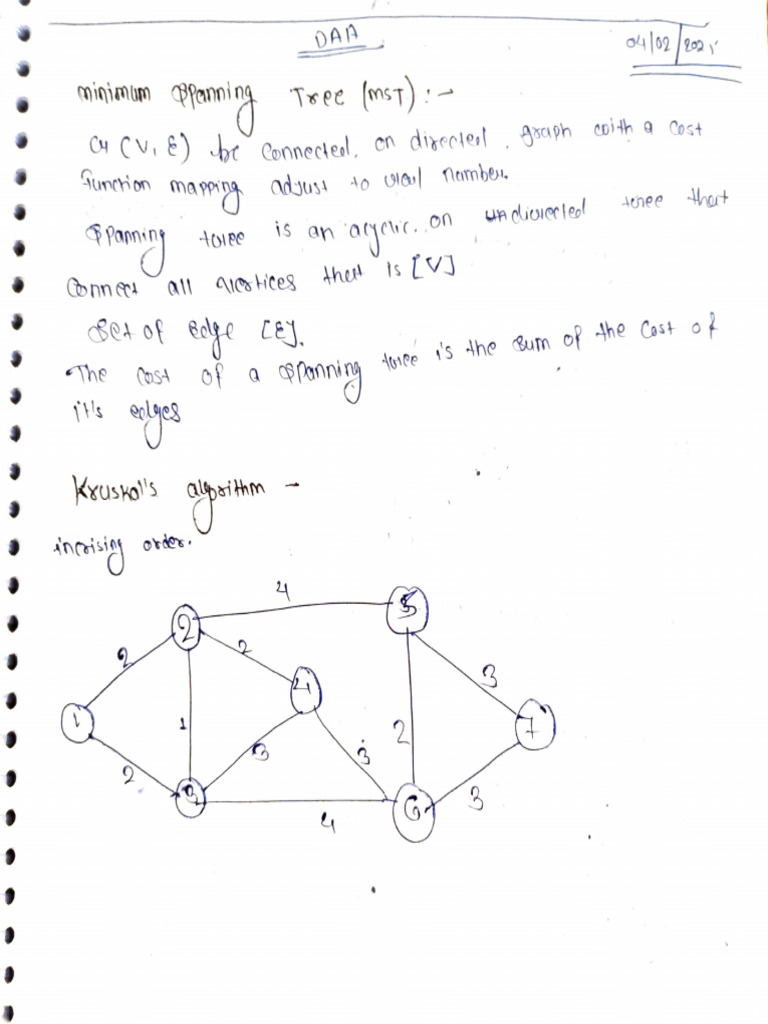 DAA
04/02/2025
minimum spanning Tree (MST) :-
G (V, E) be connected, on directed, graph with a cost
function mapping adjust to real number.
spanning tree is an acyclic. on undirected tree that
connect all vertices that is [V]
set of edge [E].
The cost of a spanning tree is the sum of the cost of
it's edges
Kruskal's algorithm -
incrising order.
4
2 5
2 2
4 3
1 1 2 7
2 3 3
3 6 3
4